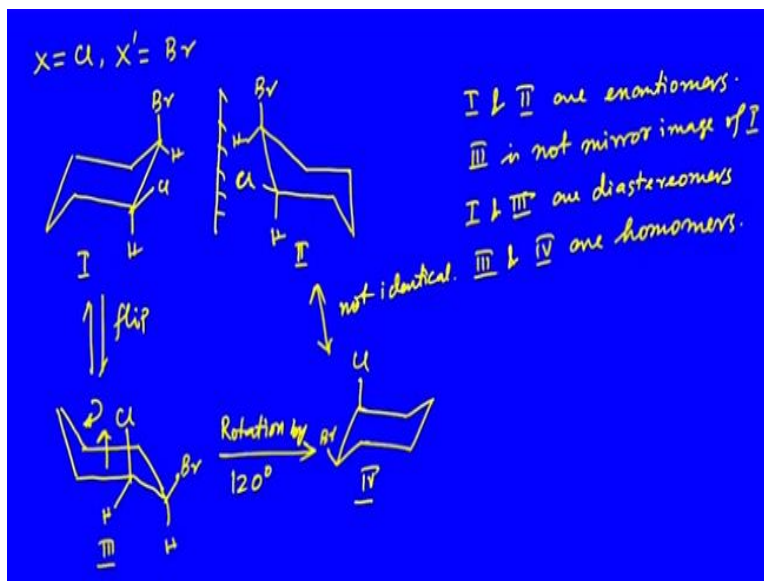 X = Cl, X' = Br
Br
H
Cl
H
I
Br
H
Cl
H
II
I & II are enantiomers.
III is not mirror image of I
I & III are diastereomers
III & IV are homomers.
flip
not identical.
Cl
Br
H
H
III
Rotation by
120°
Cl
Br
IV